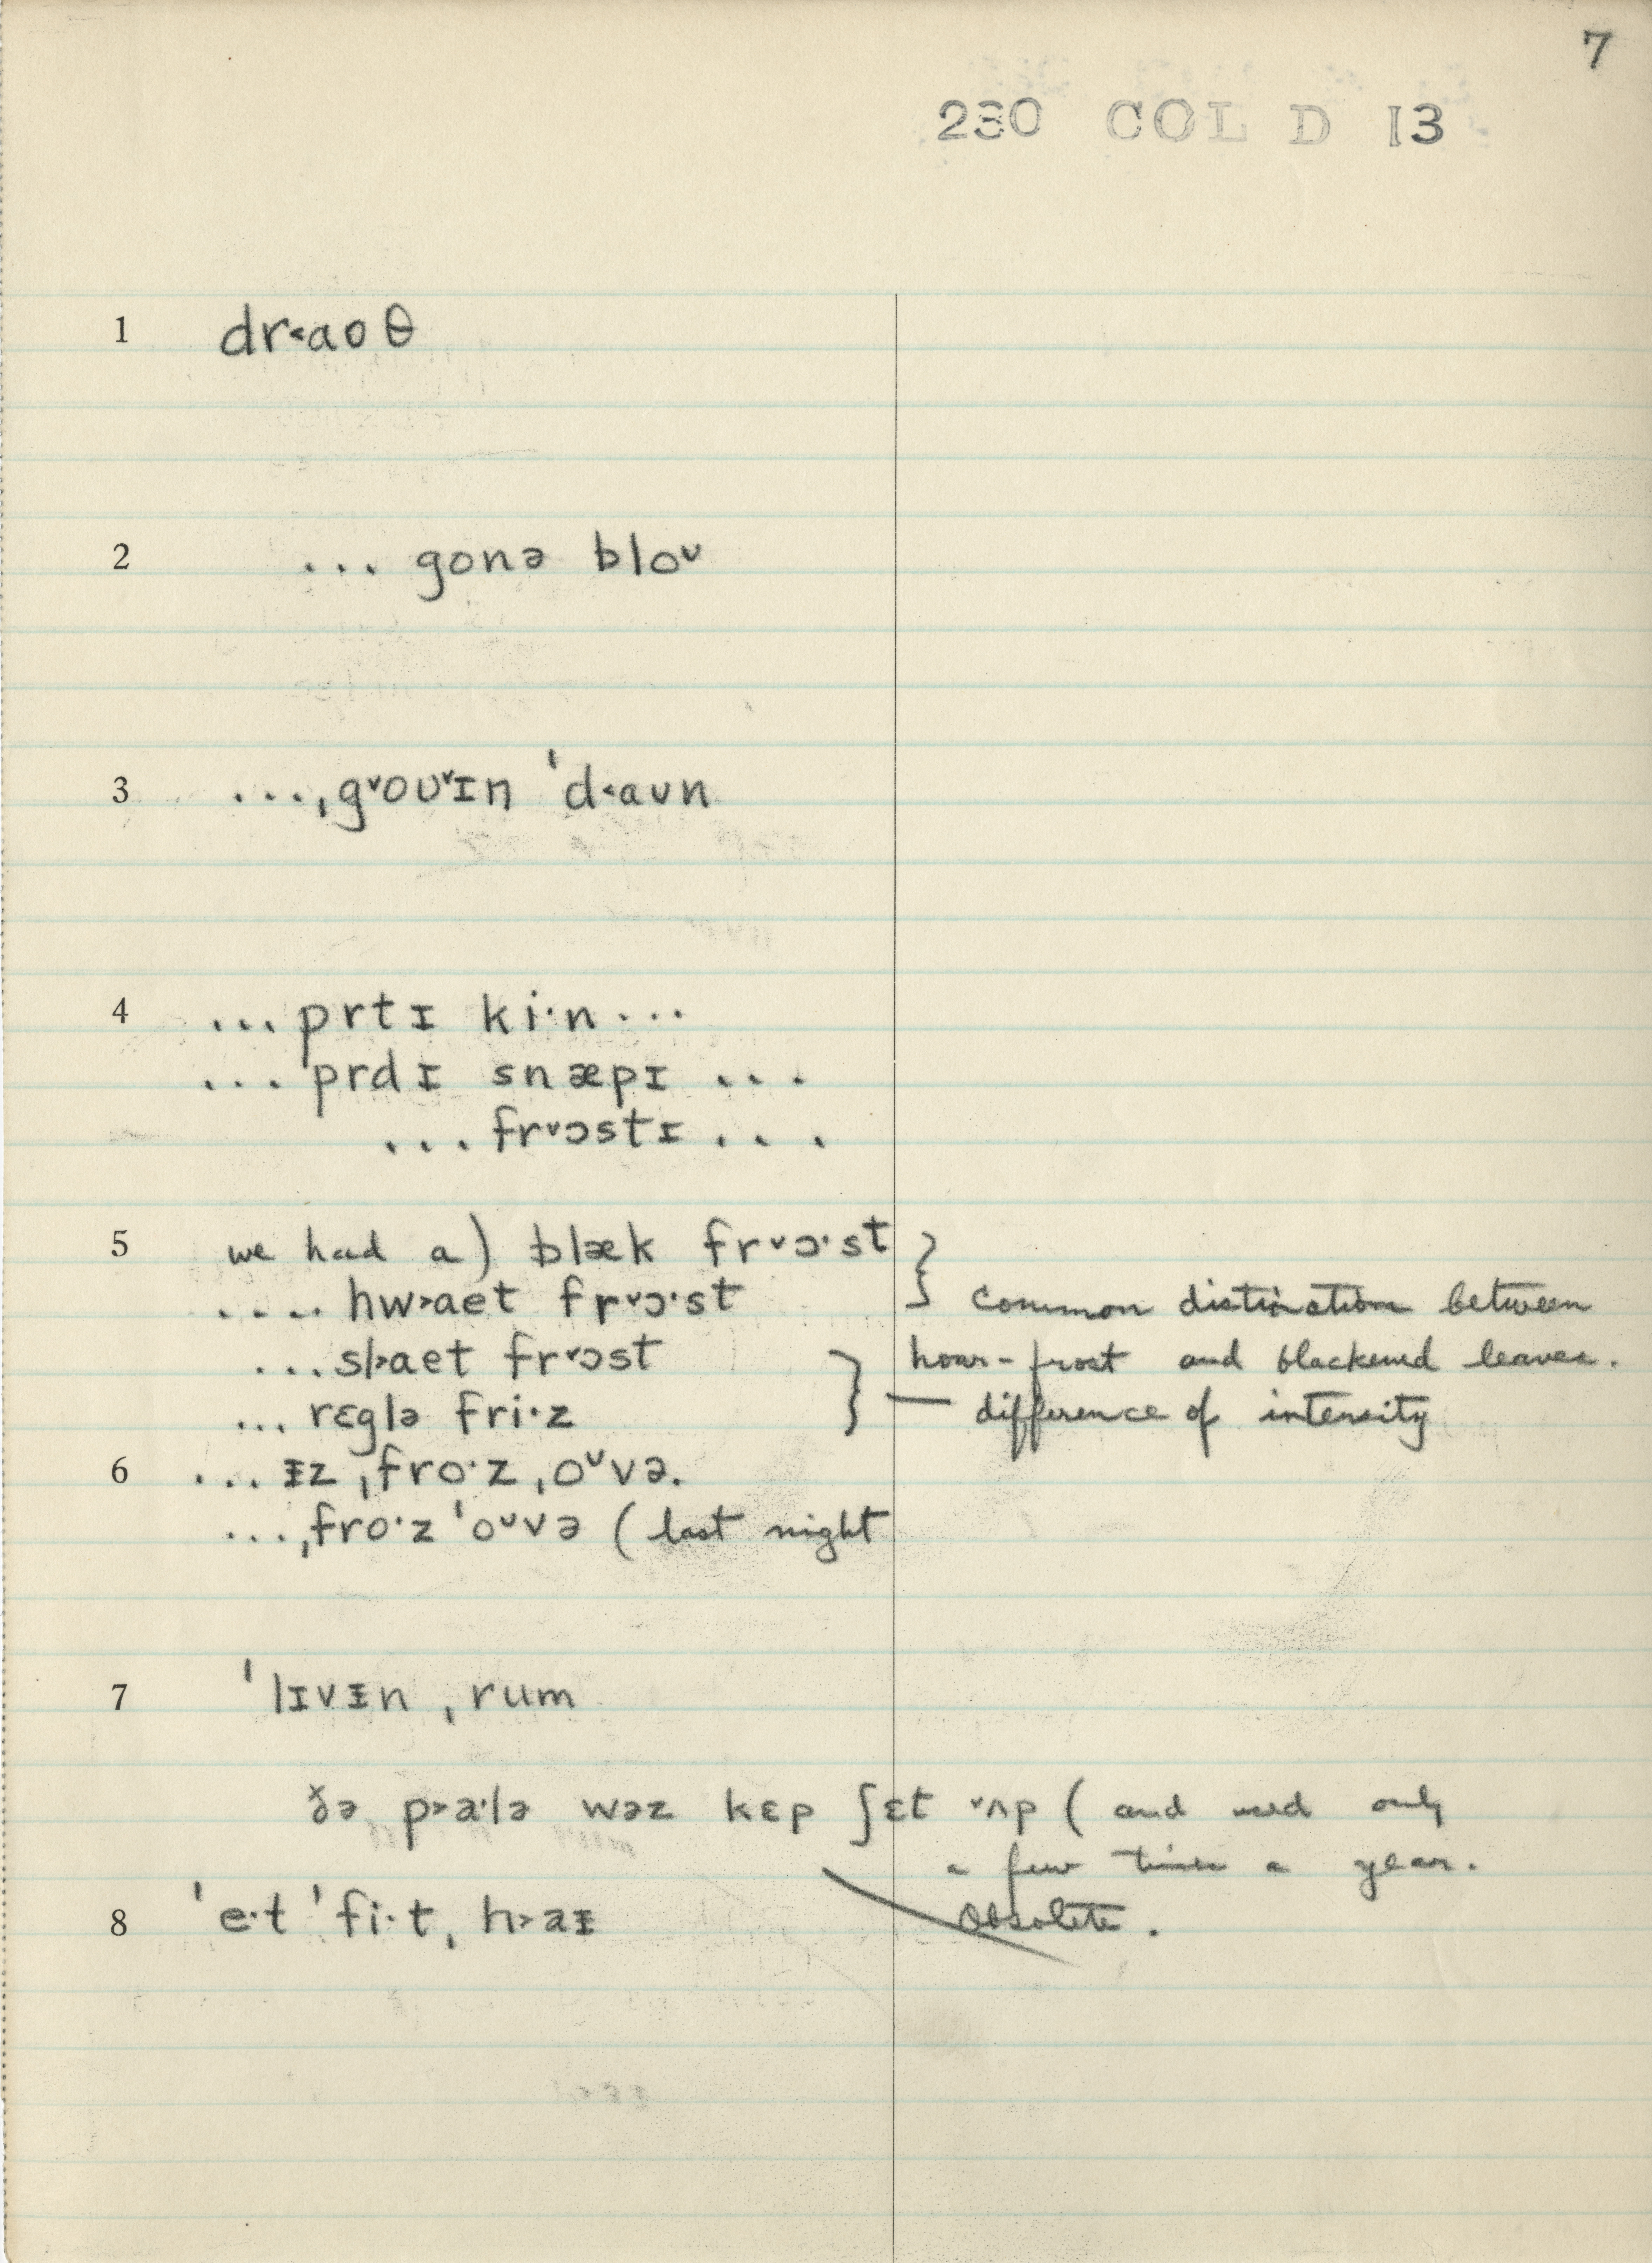 7
230 COL D 13
1 dr˂aoθ
2 ... gonə bloᴜ
3 ...ˌg˅oʊ˅ɪn ˈd˂aʊn
4 ...prtɪ ki·n...
...prdɪ snæpɪ ...
...fr˅ɔstɪ...
5 we had a) blæk fr˅ɔ·st }
.... hw˃aet fr˅ɔ·st common distinction between
...sl˃aet fr˅ɔst } hoar-frost and blackened leaves.
... rɛglə fri·z — difference of intensity
6 ... ᵻz ˌfro·z ˌoᴜvə.
...ˌfro·z ˈoᴜvə (last night
7 ˈlɪvᵻn ˌrum
ðə p˃a·lə wəz kɛp ʃɛt ˅ʌp (and used only
a few times a year.
Obsolete.
8 ˈe·t ˈfi·t ˌh˃aᵻ